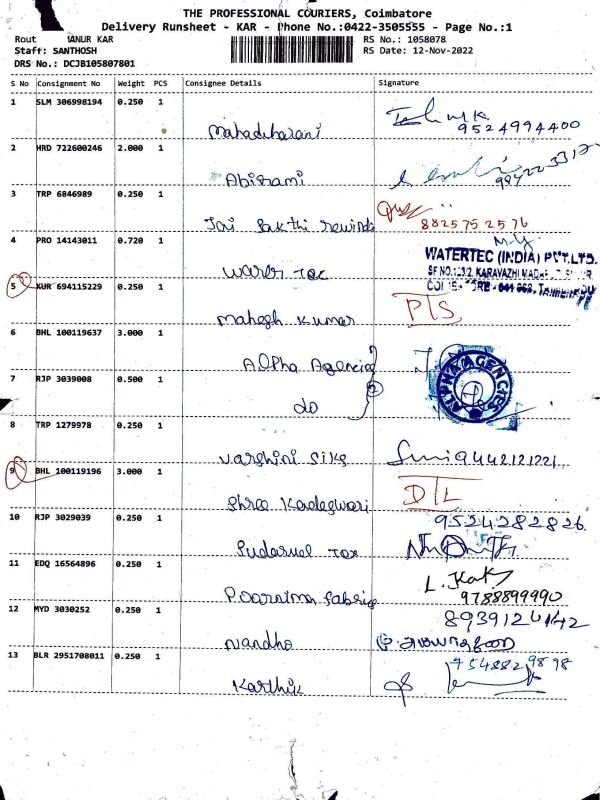 THE PROFESSIONAL COURIERS, Coimbatore
Delivery Runsheet - KAR - Phone No.:0422-3505555 - Page No.:1
Rout ANUR KAR RS No.: 1058078
Staff: SANTHOSH RS Date: 12-Nov-2022
DRS No.: DCJB105807801
S No Consignment No Weight PCS Consignee Details Signature
1 SLM 306998194 0.250 1
9524994400
2 HRD 722600246 2.000 1
Abirami
3 TRP 6846989 0.250 1
Jai Sakthi rewinds 8825752576
4 PRO 14143011 0.720 1
WATERTEC (INDIA) PVT.LTD.
5 KUR 694115229 0.250 1
Mahesh Kumar PTS
6 BHL 100119637 3.000 1
Alpha Agencies ALPHA AGENCIES
7 RJP 3039008 0.500 1
do 2
8 TRP 1279978 0.250 1
Varshini Silks 9442121221
9 BHL 100119196 3.000 1
Shree DTL
10 RJP 3029039 0.250 1 9524282826
Tex
11 EDQ 16564896 0.250 1
Poornima fabrics 9788899990
12 MYD 3030252 0.250 1
Nandho
13 BLR 2951708011 0.250 1
Karthik